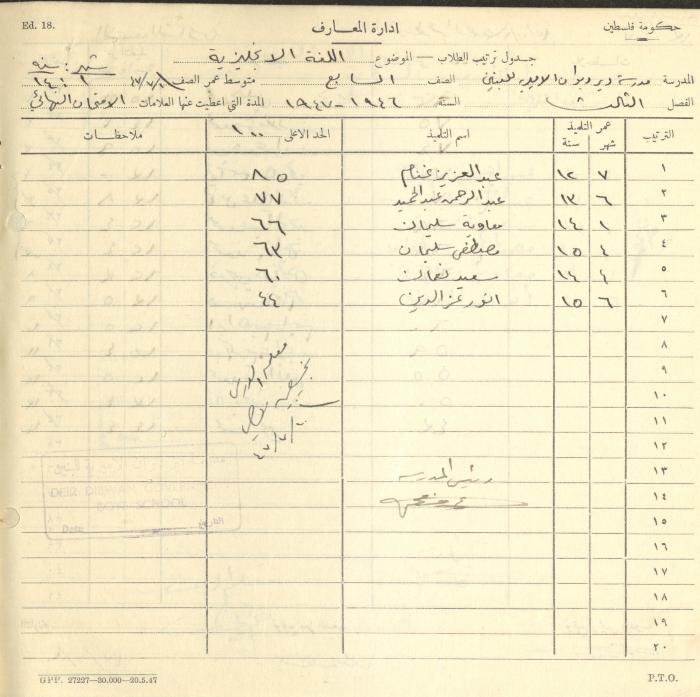 Ed. 18.
ادارة المعارف
حكومة فلسطين
جدول ترتيب الطلاب — الموضوع اللغة الانجليزية
شهر : سنه
المدرسة مدرسة دير دبوان الاميرية للبنين الصف السابع متوسط عمر الصف ١ : ١٤
الفصل الثالث السنة ١٩٤٦-١٩٤٧ المدة التي اعطيت عنها العلامات الامتحان النهائي
الترتيب عمر التلميذ شهر سنة اسم التلميذ الحد الاعلى ١٠٠ ملاحظات
١ ٧ ١٢ عبد العزيز غنام ٨٥
٢ ٦ ١٣ عبد الرحمن عبد الحميد ٧٧
٣ ١ ١٤ معاوية سليمان ٦٦
٤ ٤ ١٥ مصطفى سليمان ٦٣
٥ ٤ ١٤ سعيد نعمان ٦٠
٦ ٦ ١٥ انور عز الدين ٤٤
٧
٨
٩
١٠
١١
١٢
١٣
١٤
١٥
١٦
١٧
١٨
١٩
٢٠
معلم الدرس
رئيس المدرسه
DEIR DIBWAN
BOYS SCHOOL
Date التاريخ
GPP. 27227—30.000—20.5.47
P.T.O.